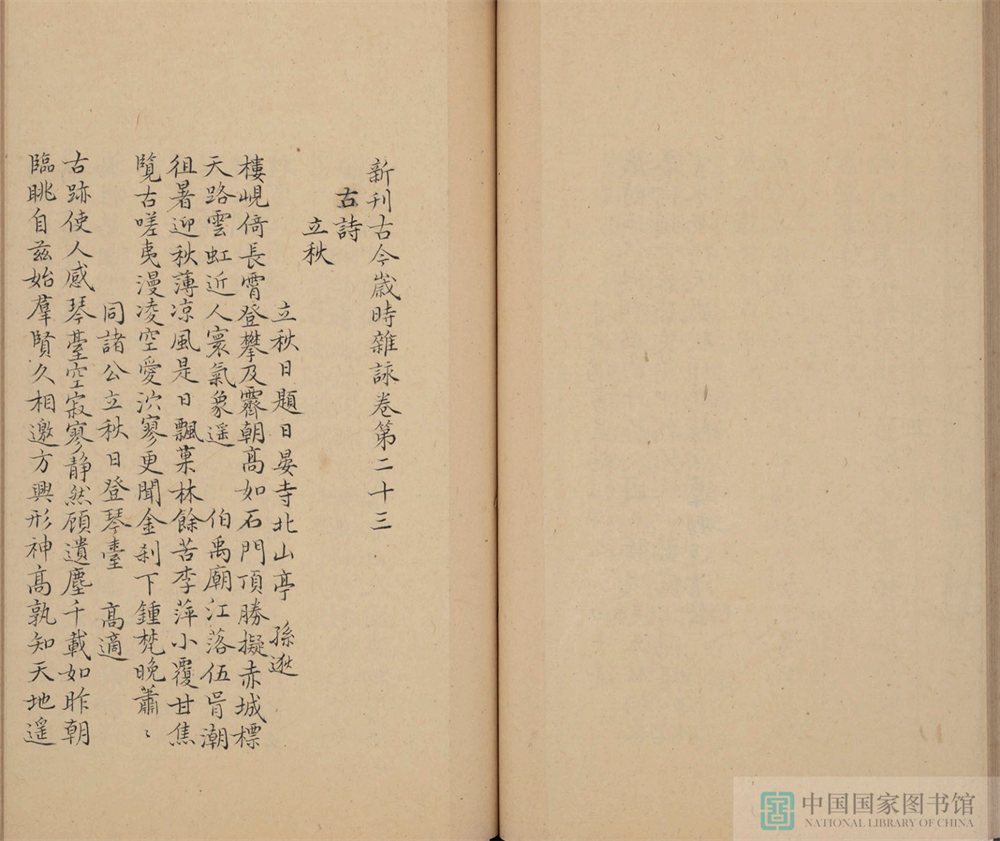 新刊古今歲時雜詠卷第二十三
古詩
立秋
立秋日題日晏寺北山亭 孫逖
樓峴倚長霄登攀及霽朝高如石門頂勝擬赤城標
天路雲虹近人寰氣象遥 伯禹廟江落伍胥潮
徂暑迎秋薄凉風是日飄菓林餘苦李萍小覆甘焦
覽古嗟夷漫凌空愛泬寥更聞金刹下鍾梵晚蕭〻
同諸公立秋日登琴臺 高適
古跡使人感琴臺空寂寥静然顧遺塵千載如昨朝
臨眺自兹始羣賢久相邀方興形神高孰知天地遥
中国国家图书馆
NATIONAL LIBRARY OF CHINA